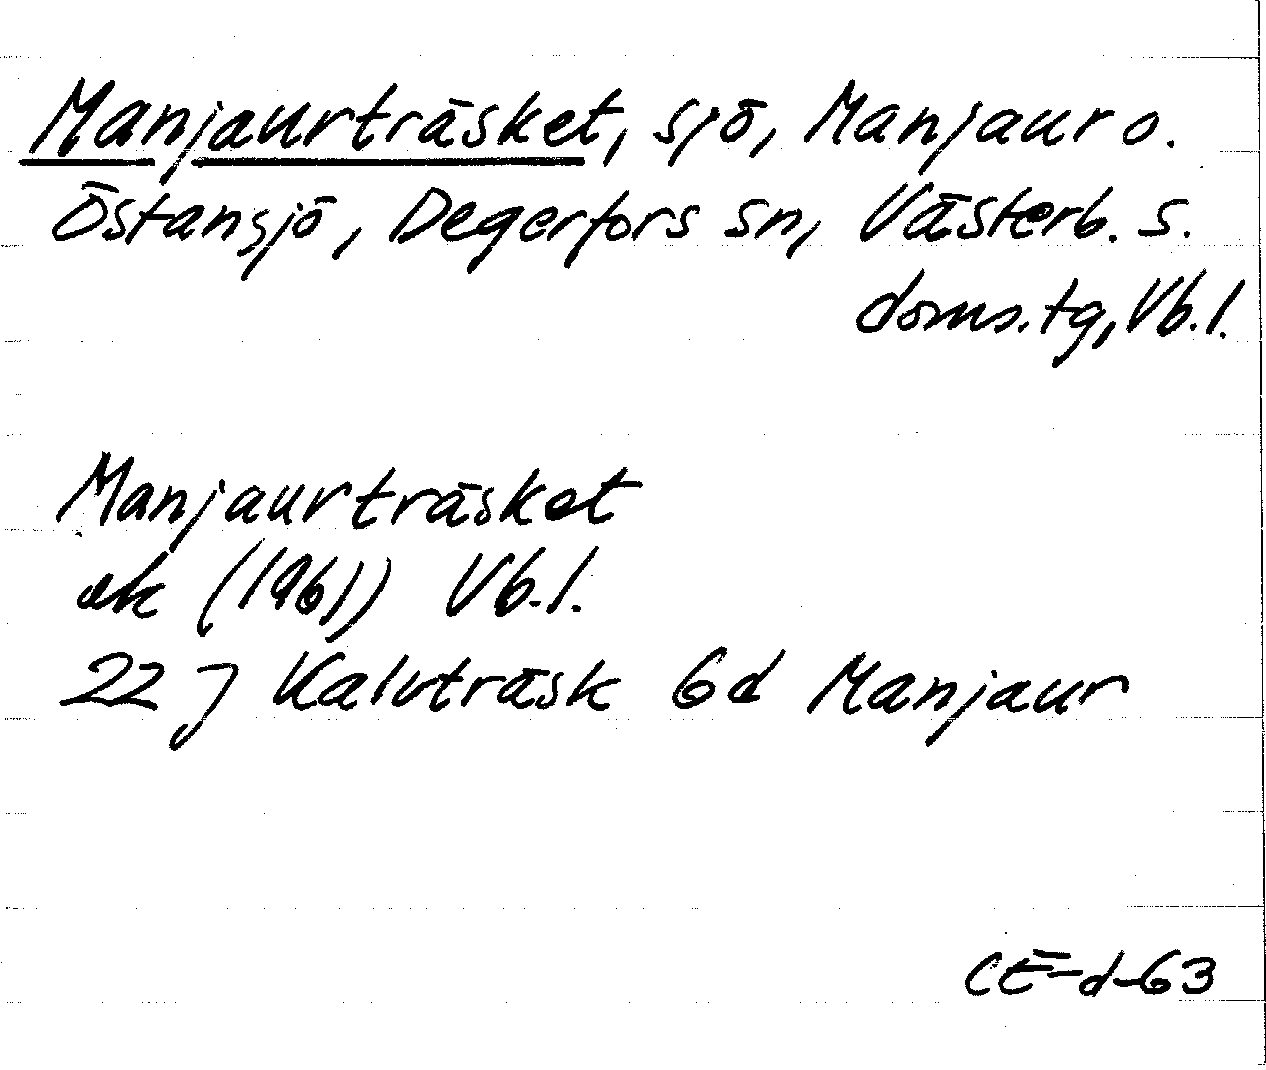 Manjaurträsket, sjö, Manjaur o.
Östansjö, Degerfors sn, Västerb. s.
doms.tg, Vb.l.
Manjaurträsket
ek (1961) Vb.l.
22 J Kalvträsk 6d Manjaur
CE-d-63